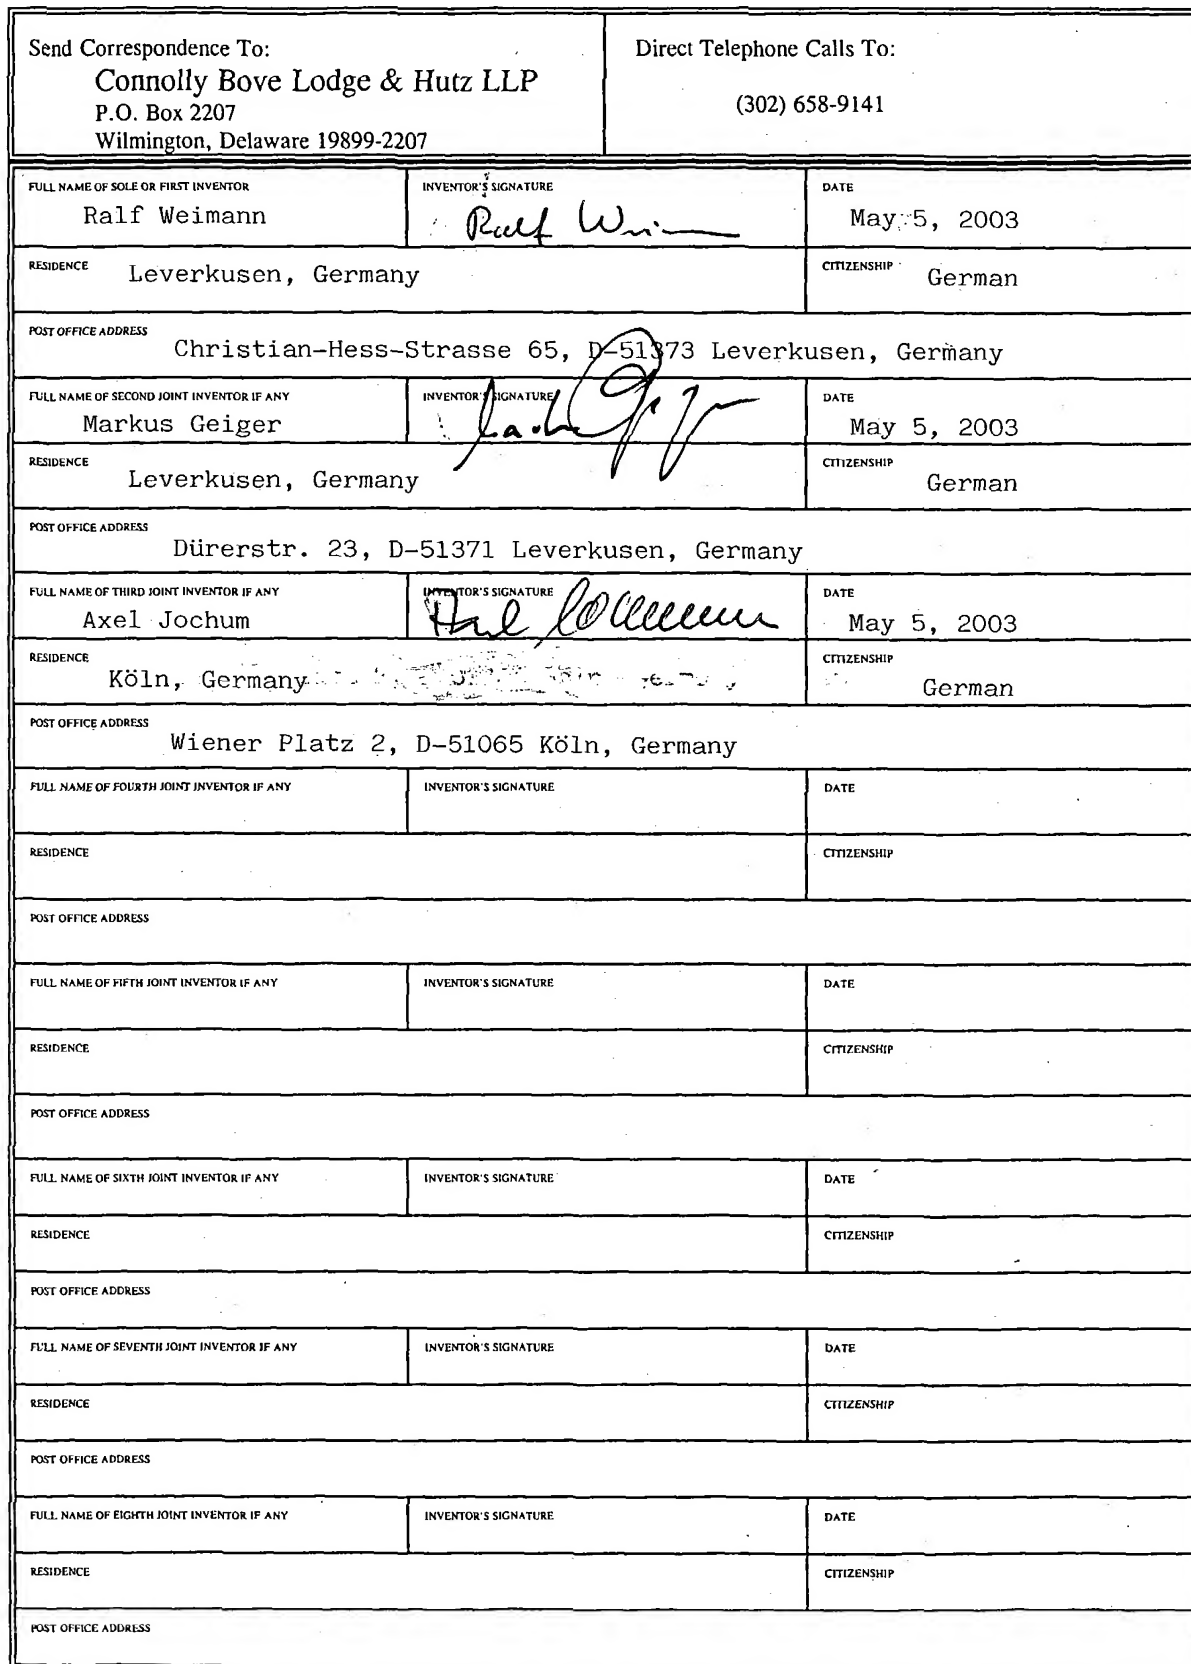 Send Correspondence To:
Connolly Bove Lodge & Hutz LLP
P.O. Box 2207
Wilmington, Delaware 19899-2207
Direct Telephone Calls To:
(302) 658-9141
FULL NAME OF SOLE OR FIRST INVENTOR
Ralf Weimann
INVENTOR'S SIGNATURE
Ralf
DATE
May 5, 2003
RESIDENCE Leverkusen, Germany
CITIZENSHIP German
POST OFFICE ADDRESS
Christian-Hess-Strasse 65, D-51373 Leverkusen, Germany
FULL NAME OF SECOND JOINT INVENTOR IF ANY
Markus Geiger
INVENTOR'S SIGNATURE
DATE
May 5, 2003
RESIDENCE
Leverkusen, Germany
CITIZENSHIP
German
POST OFFICE ADDRESS
Dürerstr. 23, D-51371 Leverkusen, Germany
FULL NAME OF THIRD JOINT INVENTOR IF ANY
Axel Jochum
INVENTOR'S SIGNATURE
DATE
May 5, 2003
RESIDENCE
Köln, Germany
CITIZENSHIP
German
POST OFFICE ADDRESS
Wiener Platz 2, D-51065 Köln, Germany
FULL NAME OF FOURTH JOINT INVENTOR IF ANY
INVENTOR'S SIGNATURE
DATE
RESIDENCE
CITIZENSHIP
POST OFFICE ADDRESS
FULL NAME OF FIFTH JOINT INVENTOR IF ANY
INVENTOR'S SIGNATURE
DATE
RESIDENCE
CITIZENSHIP
POST OFFICE ADDRESS
FULL NAME OF SIXTH JOINT INVENTOR IF ANY
INVENTOR'S SIGNATURE
DATE
RESIDENCE
CITIZENSHIP
POST OFFICE ADDRESS
FULL NAME OF SEVENTH JOINT INVENTOR IF ANY
INVENTOR'S SIGNATURE
DATE
RESIDENCE
CITIZENSHIP
POST OFFICE ADDRESS
FULL NAME OF EIGHTH JOINT INVENTOR IF ANY
INVENTOR'S SIGNATURE
DATE
RESIDENCE
CITIZENSHIP
POST OFFICE ADDRESS